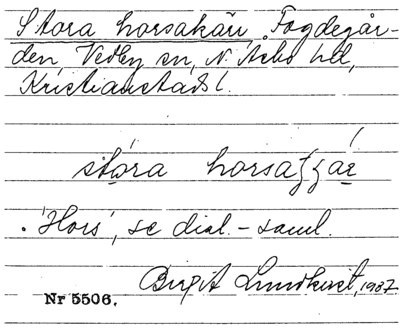 Stora horsakärr Fogdegår-
den, Vedby sn, N. Åsbo hd,
Kristianstads l.
stóra horsa
. 'Hors', se dial.-saml.
Birgit Lundkvist, 1987
Nr 5506.